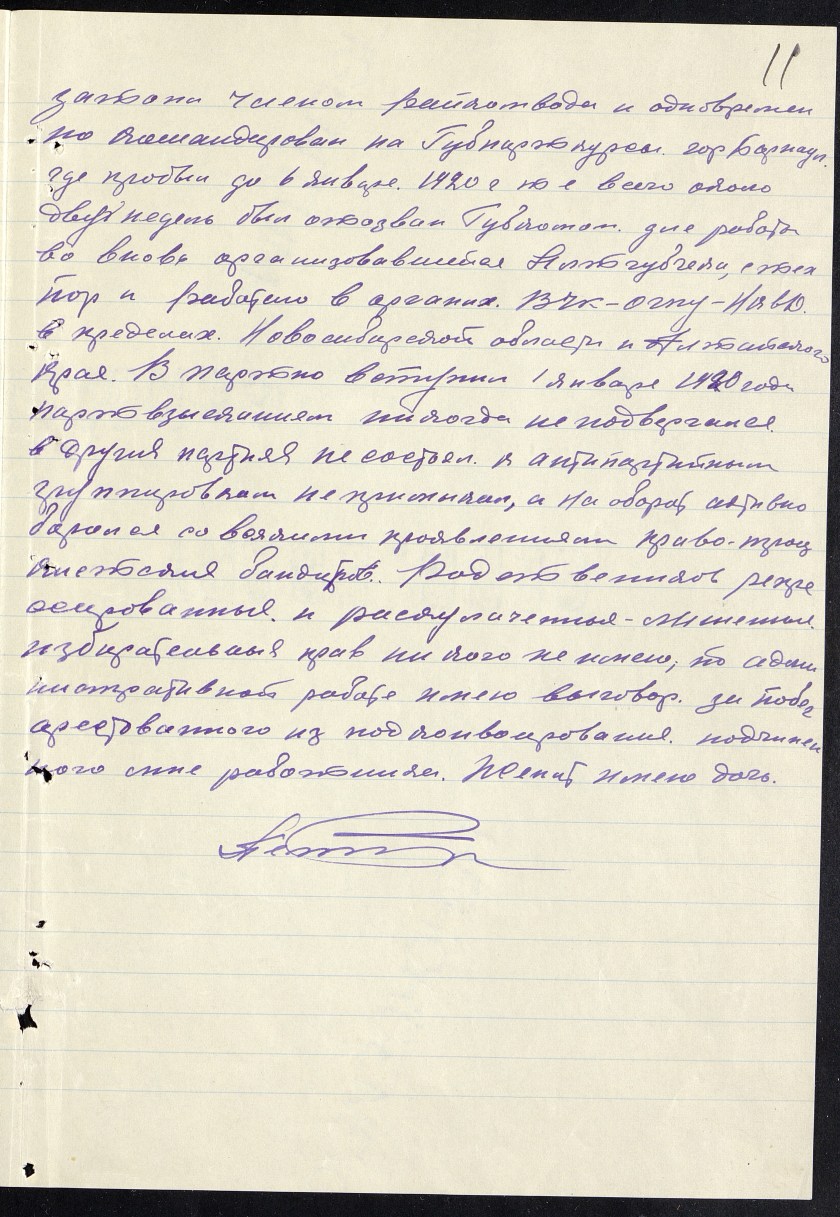 11
затем членом Райпотвода и одновремен
но командирован на Губпарткурсы. гор Барнаул.
где пробыл до 6 января. 1920 г т е всего около
двух недель был отозван Губкомом. для работы
во вновь организовавшейся Алтгубчека, с тех
пор и работаю в органах. ВЧК-ОГПУ-НКВД.
в пределах. Новосибирской области и Алтайского
края. В партию вступил 1 января 1920 года
партвзысканиям никогда не подвергался.
в других партиях не состоял. к антипартийным
группировкам не примыкал, а на оборот активно
боролся со всякими проявлениям право-троц
кистских бандитов. Родственников репре
ссированных. и раскулаченных - лишенных.
избирательных прав никого не имею, по адми
нистративной работе имею выговор. за побег
арестованного из под конвоирования. подчинен
ного мне работника. Женат имею дочь.